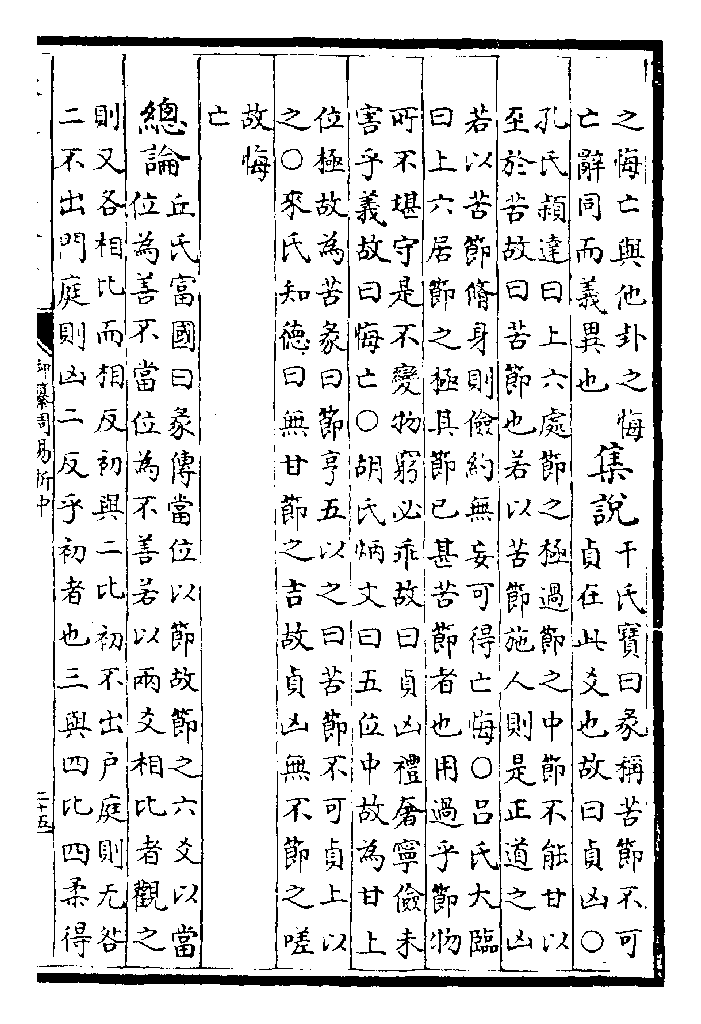 之悔亡與他卦之悔
亡辭同而義異也
集說
干氏寶曰彖稱苦節不可
貞在此爻也故曰貞凶○
孔氏穎達曰上六處節之極過節之中節不能甘以
至於苦故曰苦節也若以苦節施人則是正道之凶
若以苦節脩身則儉約無妄可得亡悔○呂氏大臨
曰上六居節之極其節已甚苦節者也用過乎節物
所不堪守是不變物窮必乖故曰貞凶禮奢寧儉未
害乎義故曰悔亡○胡氏炳文曰五位中故為甘上
位極故為苦彖曰節亨五以之曰苦節不可貞上以
之○來氏知德曰無甘節之吉故貞凶無不節之嗟
故悔
亡
總論
丘氏富國曰彖傳當位以節故節之六爻以當
位為善不當位為不善若以兩爻相比者觀之
則又各相比而相反初與二比初不出戶庭則无咎
二不出門庭則凶二反乎初者也三與四比四柔得
御纂周易折中
二十五